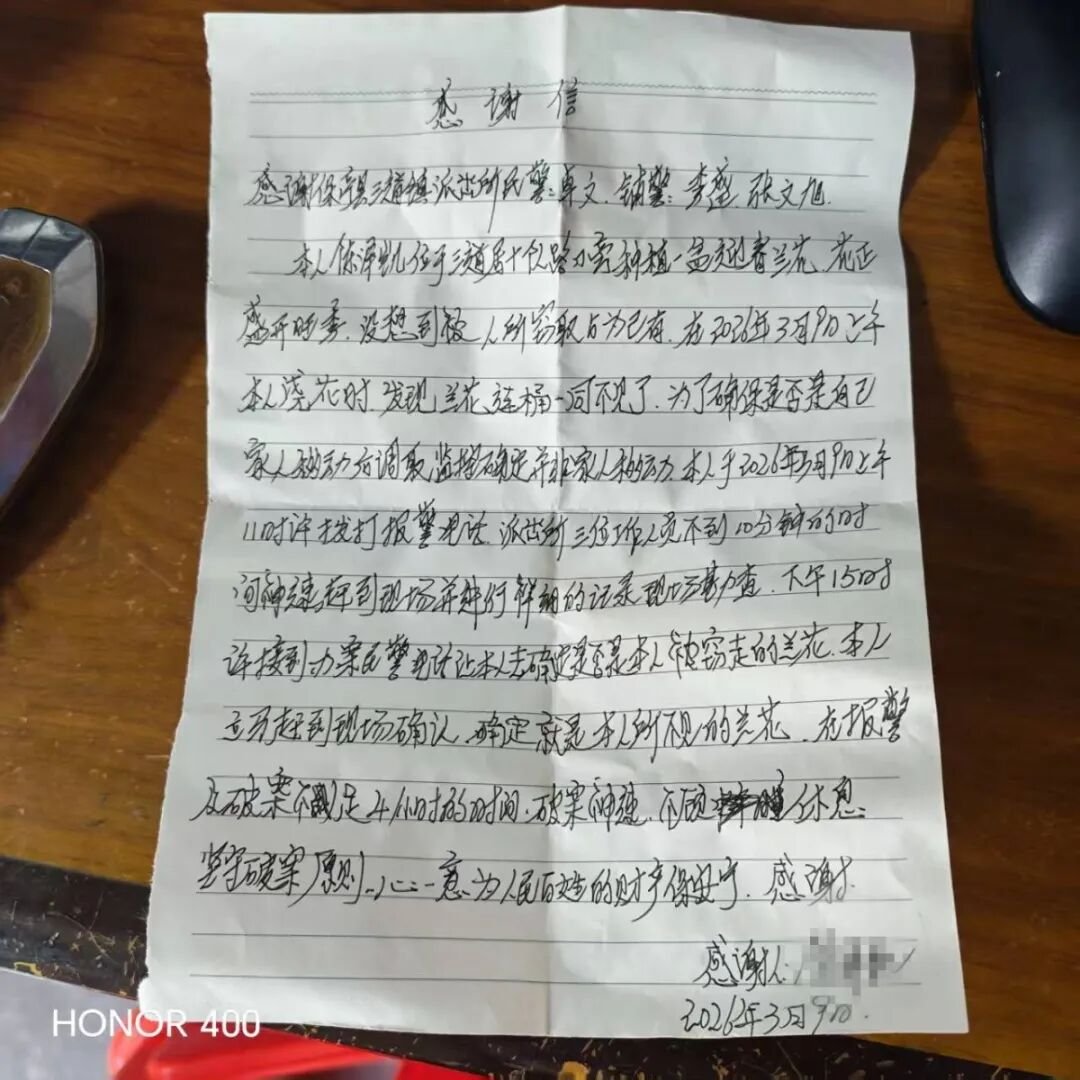 感谢信
感谢保亭县三道镇派出所民警:卓文.辅警:李莲.张文旭.
本人 位于三道居十 路 种植一盆 春兰花、花正
盛开旺季.没想到被人所窃取占为已有.在2026年3月9日上午
本人浇花时.发现兰花、连桶一同不见了.为了确保是否是自己
家人移动后调取监控确定并非家人移动.本人于2026年3月9日上午
11时许拨打报警电话.派出所三位工作人员不到10分钟的时
间神速赶到现场并进行详细的记录现场勘查.下午15时
许接到办案民警电话让本人去确定是否是本人被窃走的兰花.本人
立马赶到现场确认.确定就是本人所不见的兰花.在报警
及破案不足4小时的时间.破案神速.不顾 休息.
坚守破案原则.一心一意.为人民百姓的财产保安宁.感谢.
感谢人:
2026年3月9日.
HONOR 400